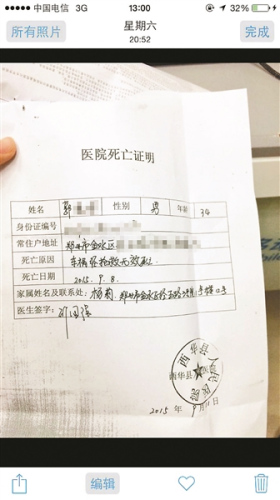 中国电信 3G 13:00 32%
所有照片 星期六 完成
20:52
医院死亡证明
姓名 郭 性别 男 年龄 34
身份证编号
常住户地址 郑州市金水区
死亡原因 车祸经抢救无效死亡
死亡日期 2015.9.8.
家属姓名及联系处: 杨莉. 郑州市金水区经五路
医生签字:
西华县人民医院
西华县
2015年9月
编辑